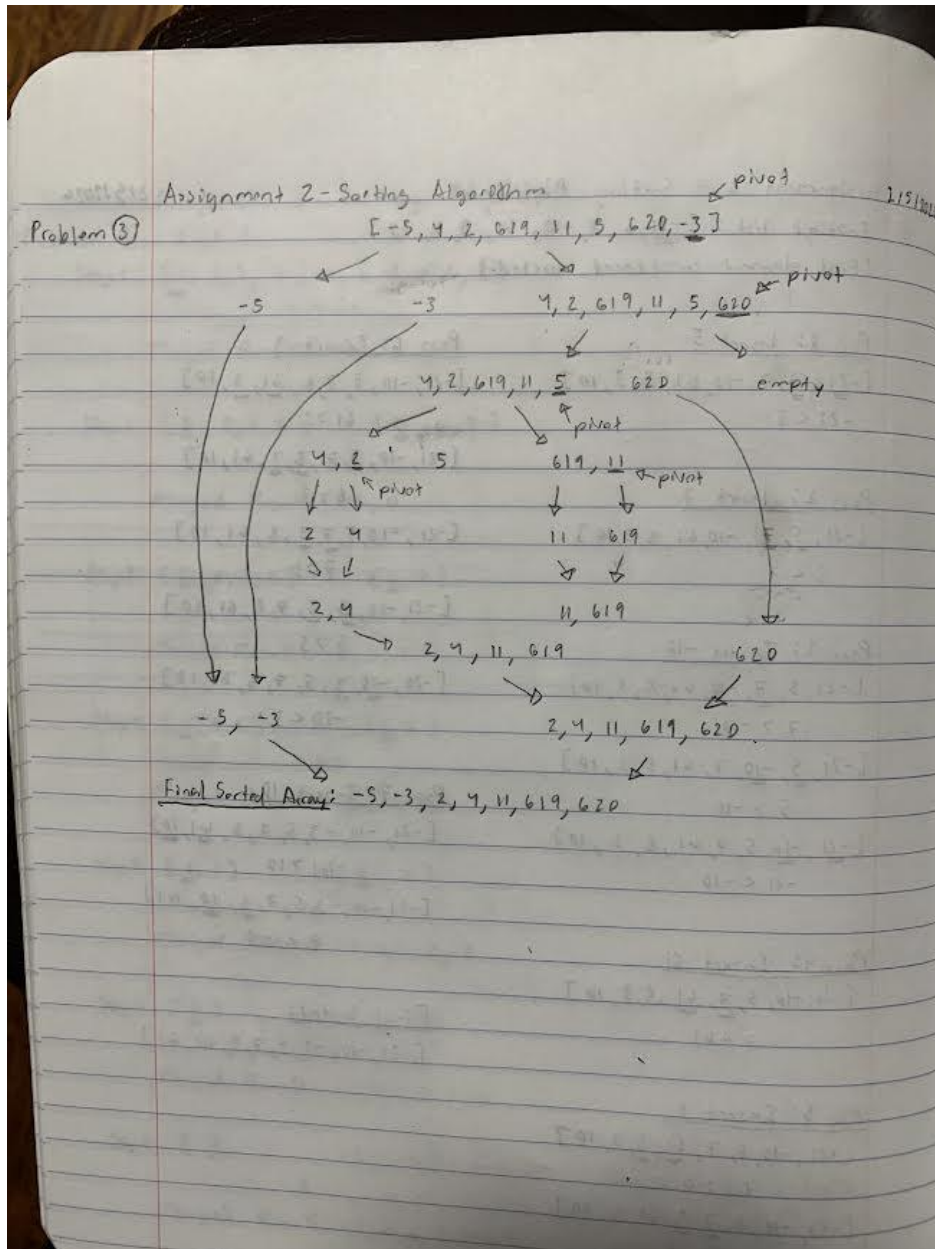 pivot
Assignment 2 - Sorting Algorithm
Problem ③ [-5, 4, 2, 619, 11, 5, 620, -3]
pivot
-5 -3 4, 2, 619, 11, 5, 620
4, 2, 619, 11, 5 620 empty
pivot
4, 2 5 619, 11
pivot pivot
2 4 11 619
2, 4 11, 619
2, 4, 11, 619 620
-5, -3 2, 4, 11, 619, 620
Final Sorted Array: -5, -3, 2, 4, 11, 619, 620